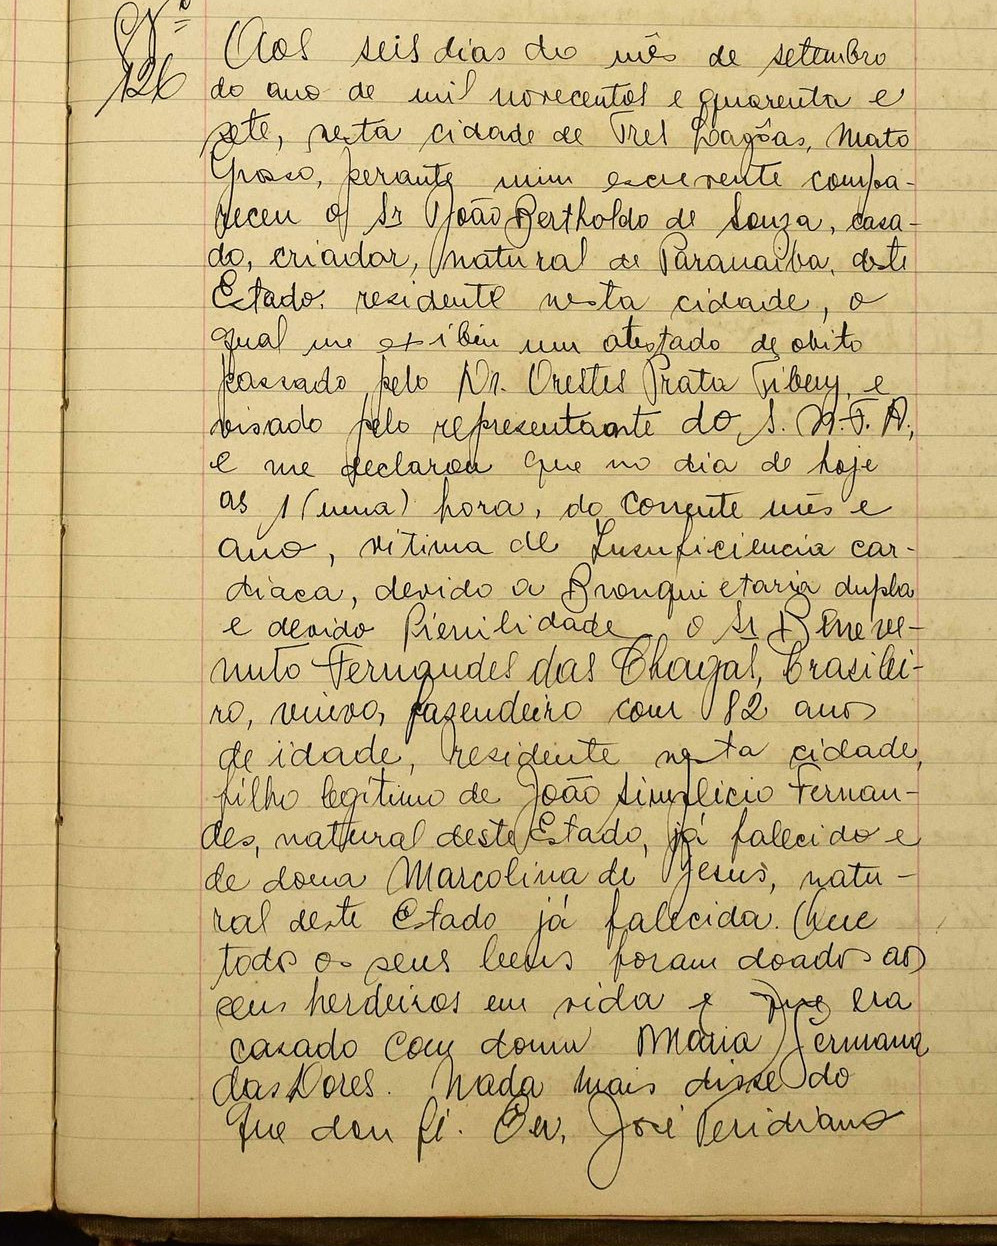 Nº
126
Aos seis dias do mês de setembro
do ano de mil novecentos e quarenta e
sete, nesta cidade de Tres Lagôas, Mato
Grosso, perante mim escrevente compa-
receu o Sr João Bertholdo de Souza, casa-
do, criador, natural de Paranaiba, deste
Estado, residente nesta cidade, o
qual me exibiu um atestado de obito
passado pelo Dr. Orestes Prata Tibery, e
visado pelo representante do S. N. F. A.,
e me declarou que no dia de hoje
as 1 (uma) hora, do corrente mês e
ano, vitima de Insuficiencia car-
diaca, devido a Bronquietaria dupla
e devido o Sr Beneve-
nuto Fernandes das Chagas, brasilei-
ro, viuvo, fazendeiro com 82 anos
de idade, residente nesta cidade,
filho legítimo de João Simplicio Fernan-
des, natural deste Estado, já falecido e
de dona Marcolina de Jesus, natu-
ral deste Estado já falecida. Que
todos os seus bens foram doados aos
seus herdeiros em vida e que era
casado com dona Maria Germana
das Dores. Nada mais disse do
que dou fé. Eu, José